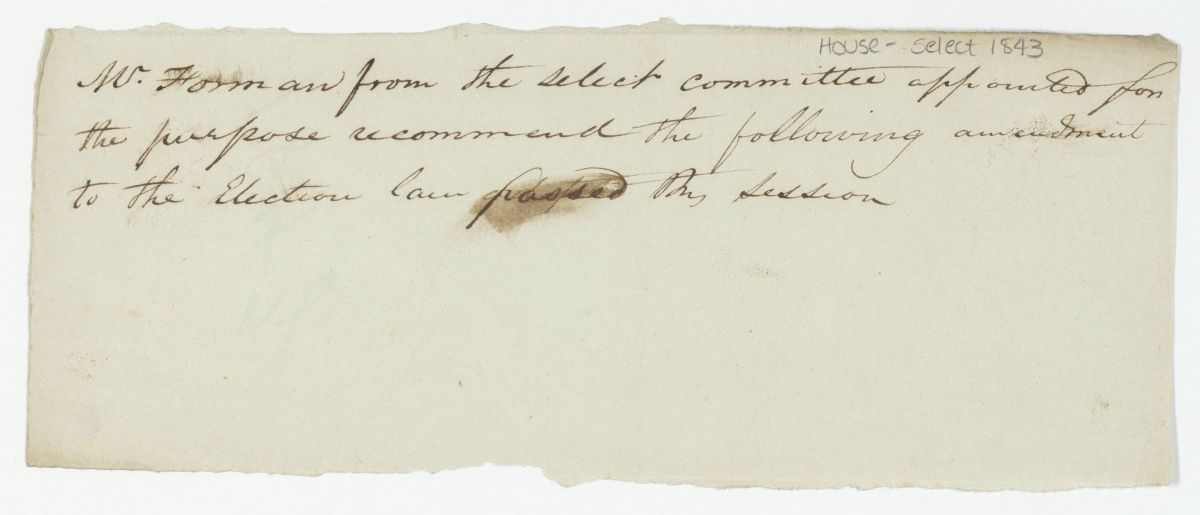 House - Select 1843
Mr. Forman from the select committee appointed for
the purpose recommend the following amendment
to the Election law passed this session